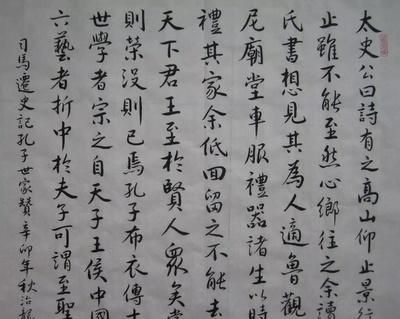 太史公曰詩有之高山仰止景行
止雖不能至然心鄉往之余讀
氏書想見其為人適魯觀
尼廟堂車服禮器諸生以時
禮其家余低回留之不能去
天下君王至於賢人眾矣當
則榮沒則已焉孔子布衣傳十
世學者宗之自天子王侯中國
六藝者折中於夫子可謂至聖
司馬遷史記孔子世家贊辛卯年秋治龍